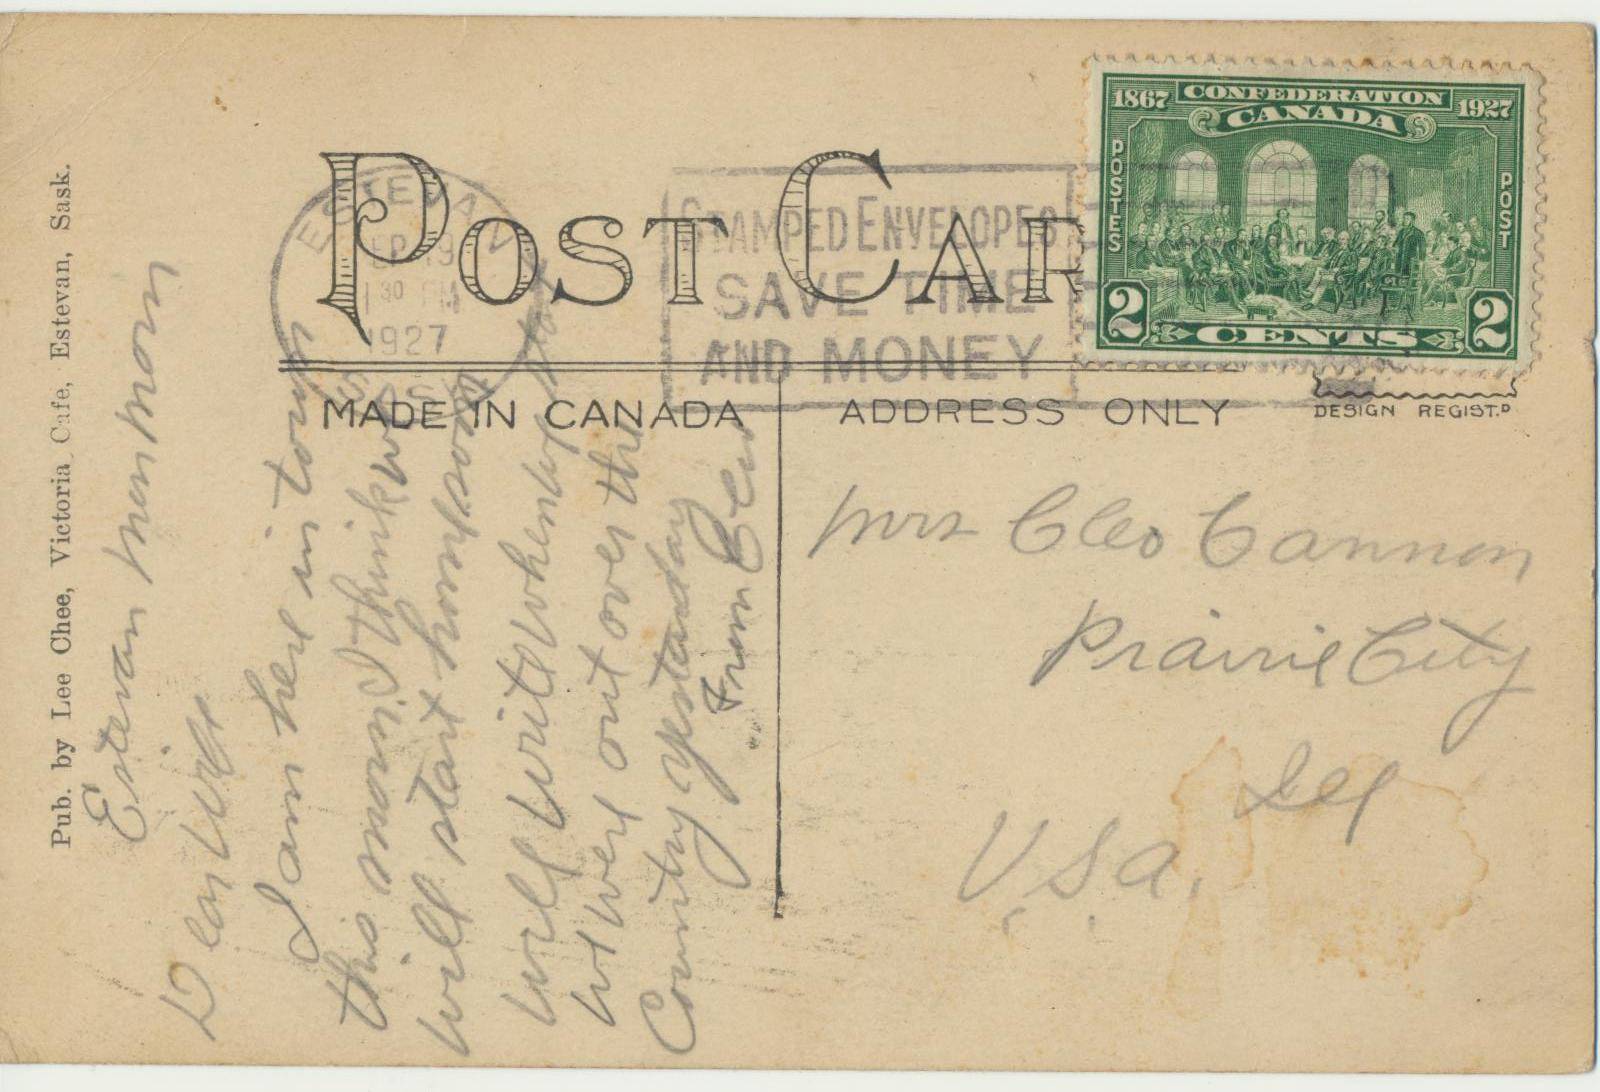 Pub. by Lee Chee, Victoria Cafe, Estevan, Sask.
POST CAR
MADE IN CANADA
ADDRESS ONLY
DESIGN REGIST.D
1867 CONFEDERATION 1927
CANADA
POSTES
POST
2 CENTS 2
ESTEVAN
SEP 19
1 30 PM
1927
SASK
STAMPED ENVELOPES
SAVE TIME
AND MONEY
Estevan Mon morn
Dear Wife
I am here in town
this morn. I think we
will start home soon
will write when we start
we were out over the
Country yesterday
From Cleo
Mrs Cleo Cannon
Prairie City
Ill
U.S.A.